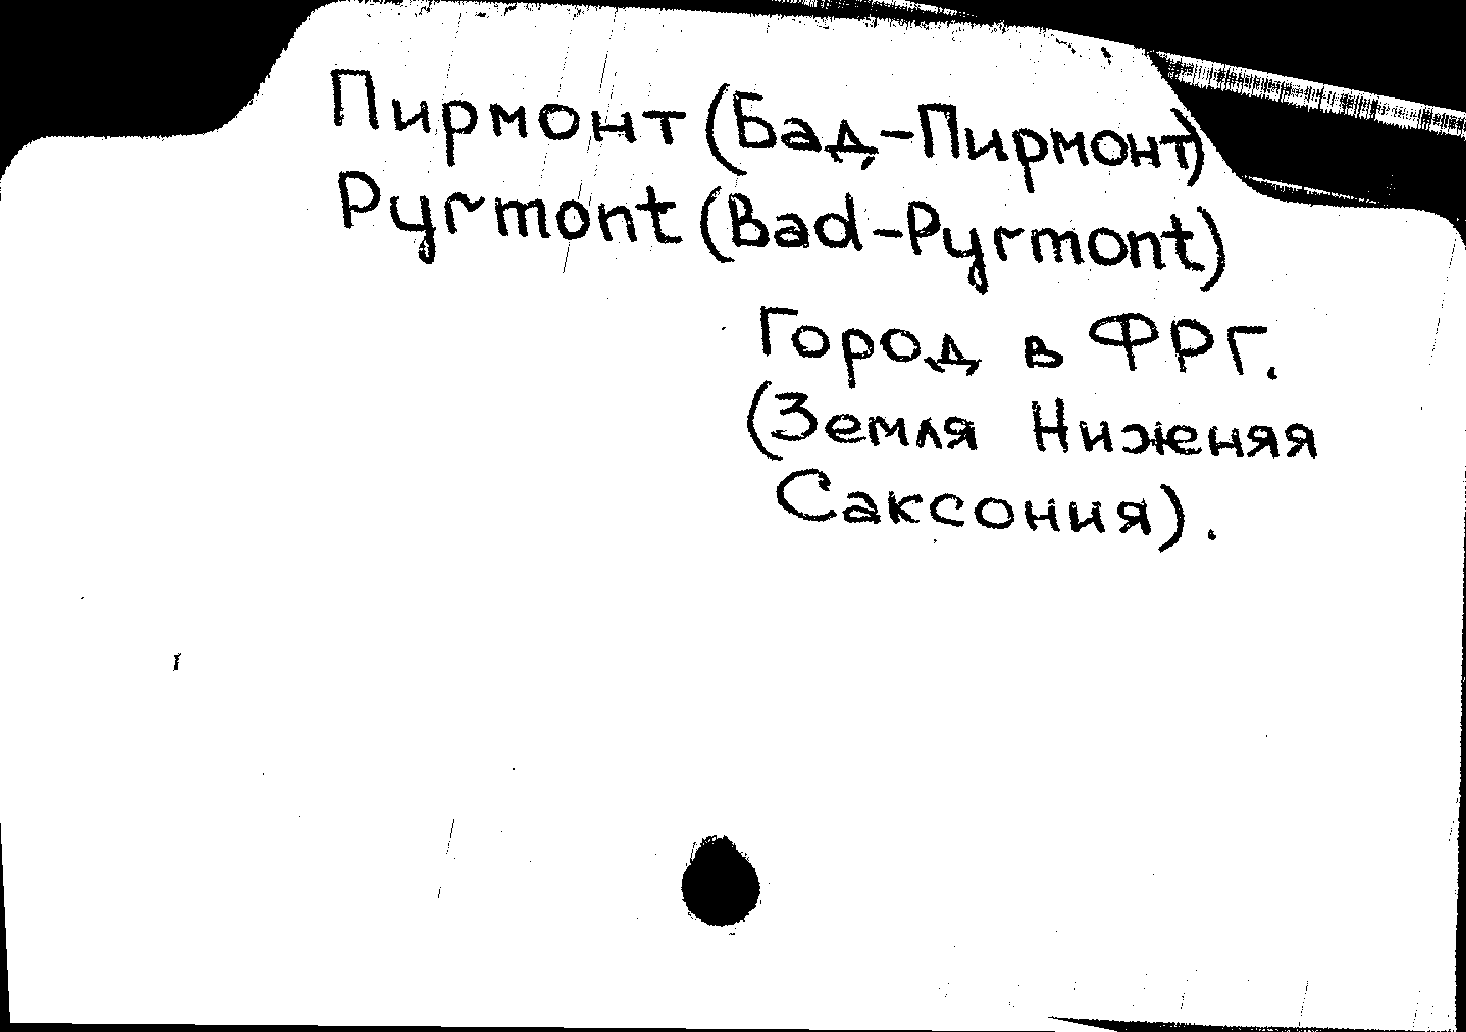 Пирмонт (Бад-Пирмонт)
Pyrmont (Bad-Pyrmont)
Город в ФРГ.
(Земля Ниженяя
Саксония).